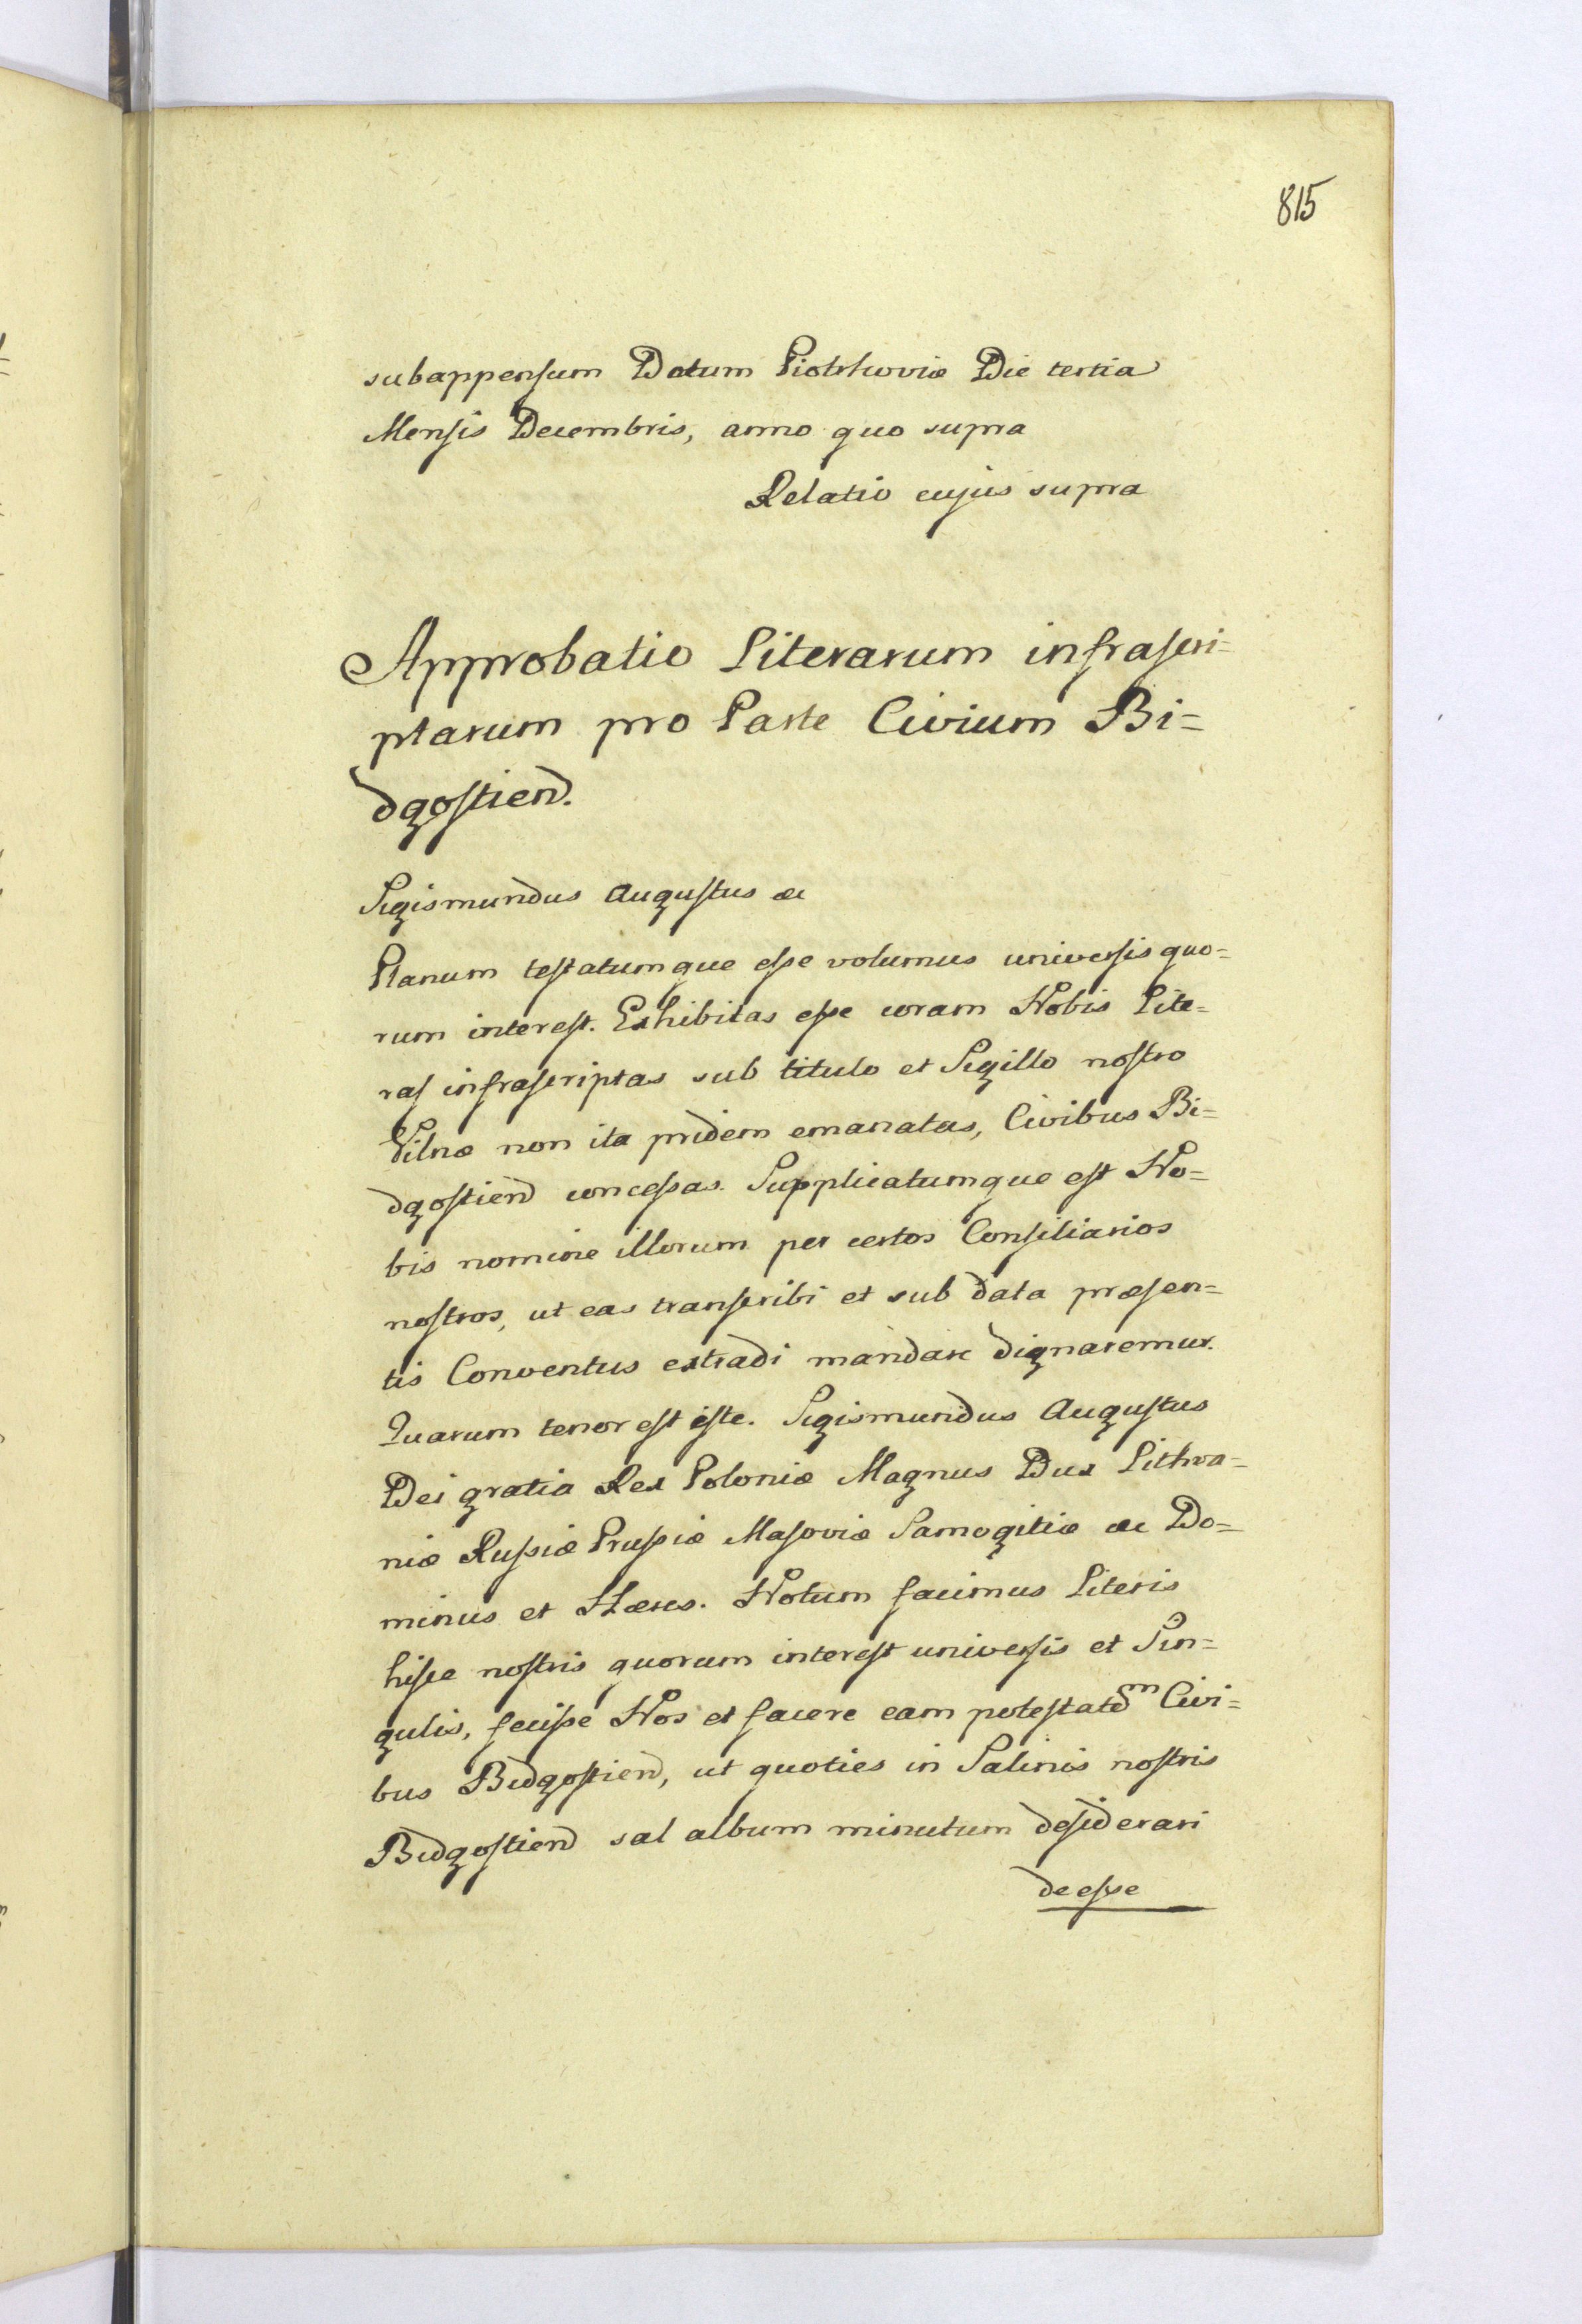 815
subappensum Datum Piotrkoviæ Die tertia
Mensis Decembris, anno quo supra
Relatio cujus supra
Approbatio Literarum infrascri=
ptarum pro Parte Civium Bi=
dgostien.
Sigismundus Augustus &c
Planum testatumque esse volumus universis quo=
rum interest. Exhibitas esse coram Nobis Lite=
ras infrascriptas sub titulo et Sigillo nostro
Vilnæ non ita pridem emanatas, Civibus Bi=
dgostien concessas. Supplicatumque est No=
bis nomine illorum per certos Consiliarios
nostros, ut eas transcribi et sub data præsen=
tis Conventus extradi mandare dignaremur.
Quarum tenor est iste. Sigismundus Augustus
Dei gratia Rex Poloniæ Magnus Dux Lithva=
niæ Russiæ Prussiæ Masoviæ Samogitiæ &c Do=
minus et Hæres. Notum facimus Literis
hisce nostris quorum interest universis et Sin=
gulis, fecisse Nos et facere eam potestatem Civi=
bus Bidgostien, ut quoties in Salinis nostris
Bidgostien sal album minutum desiderari
deesse